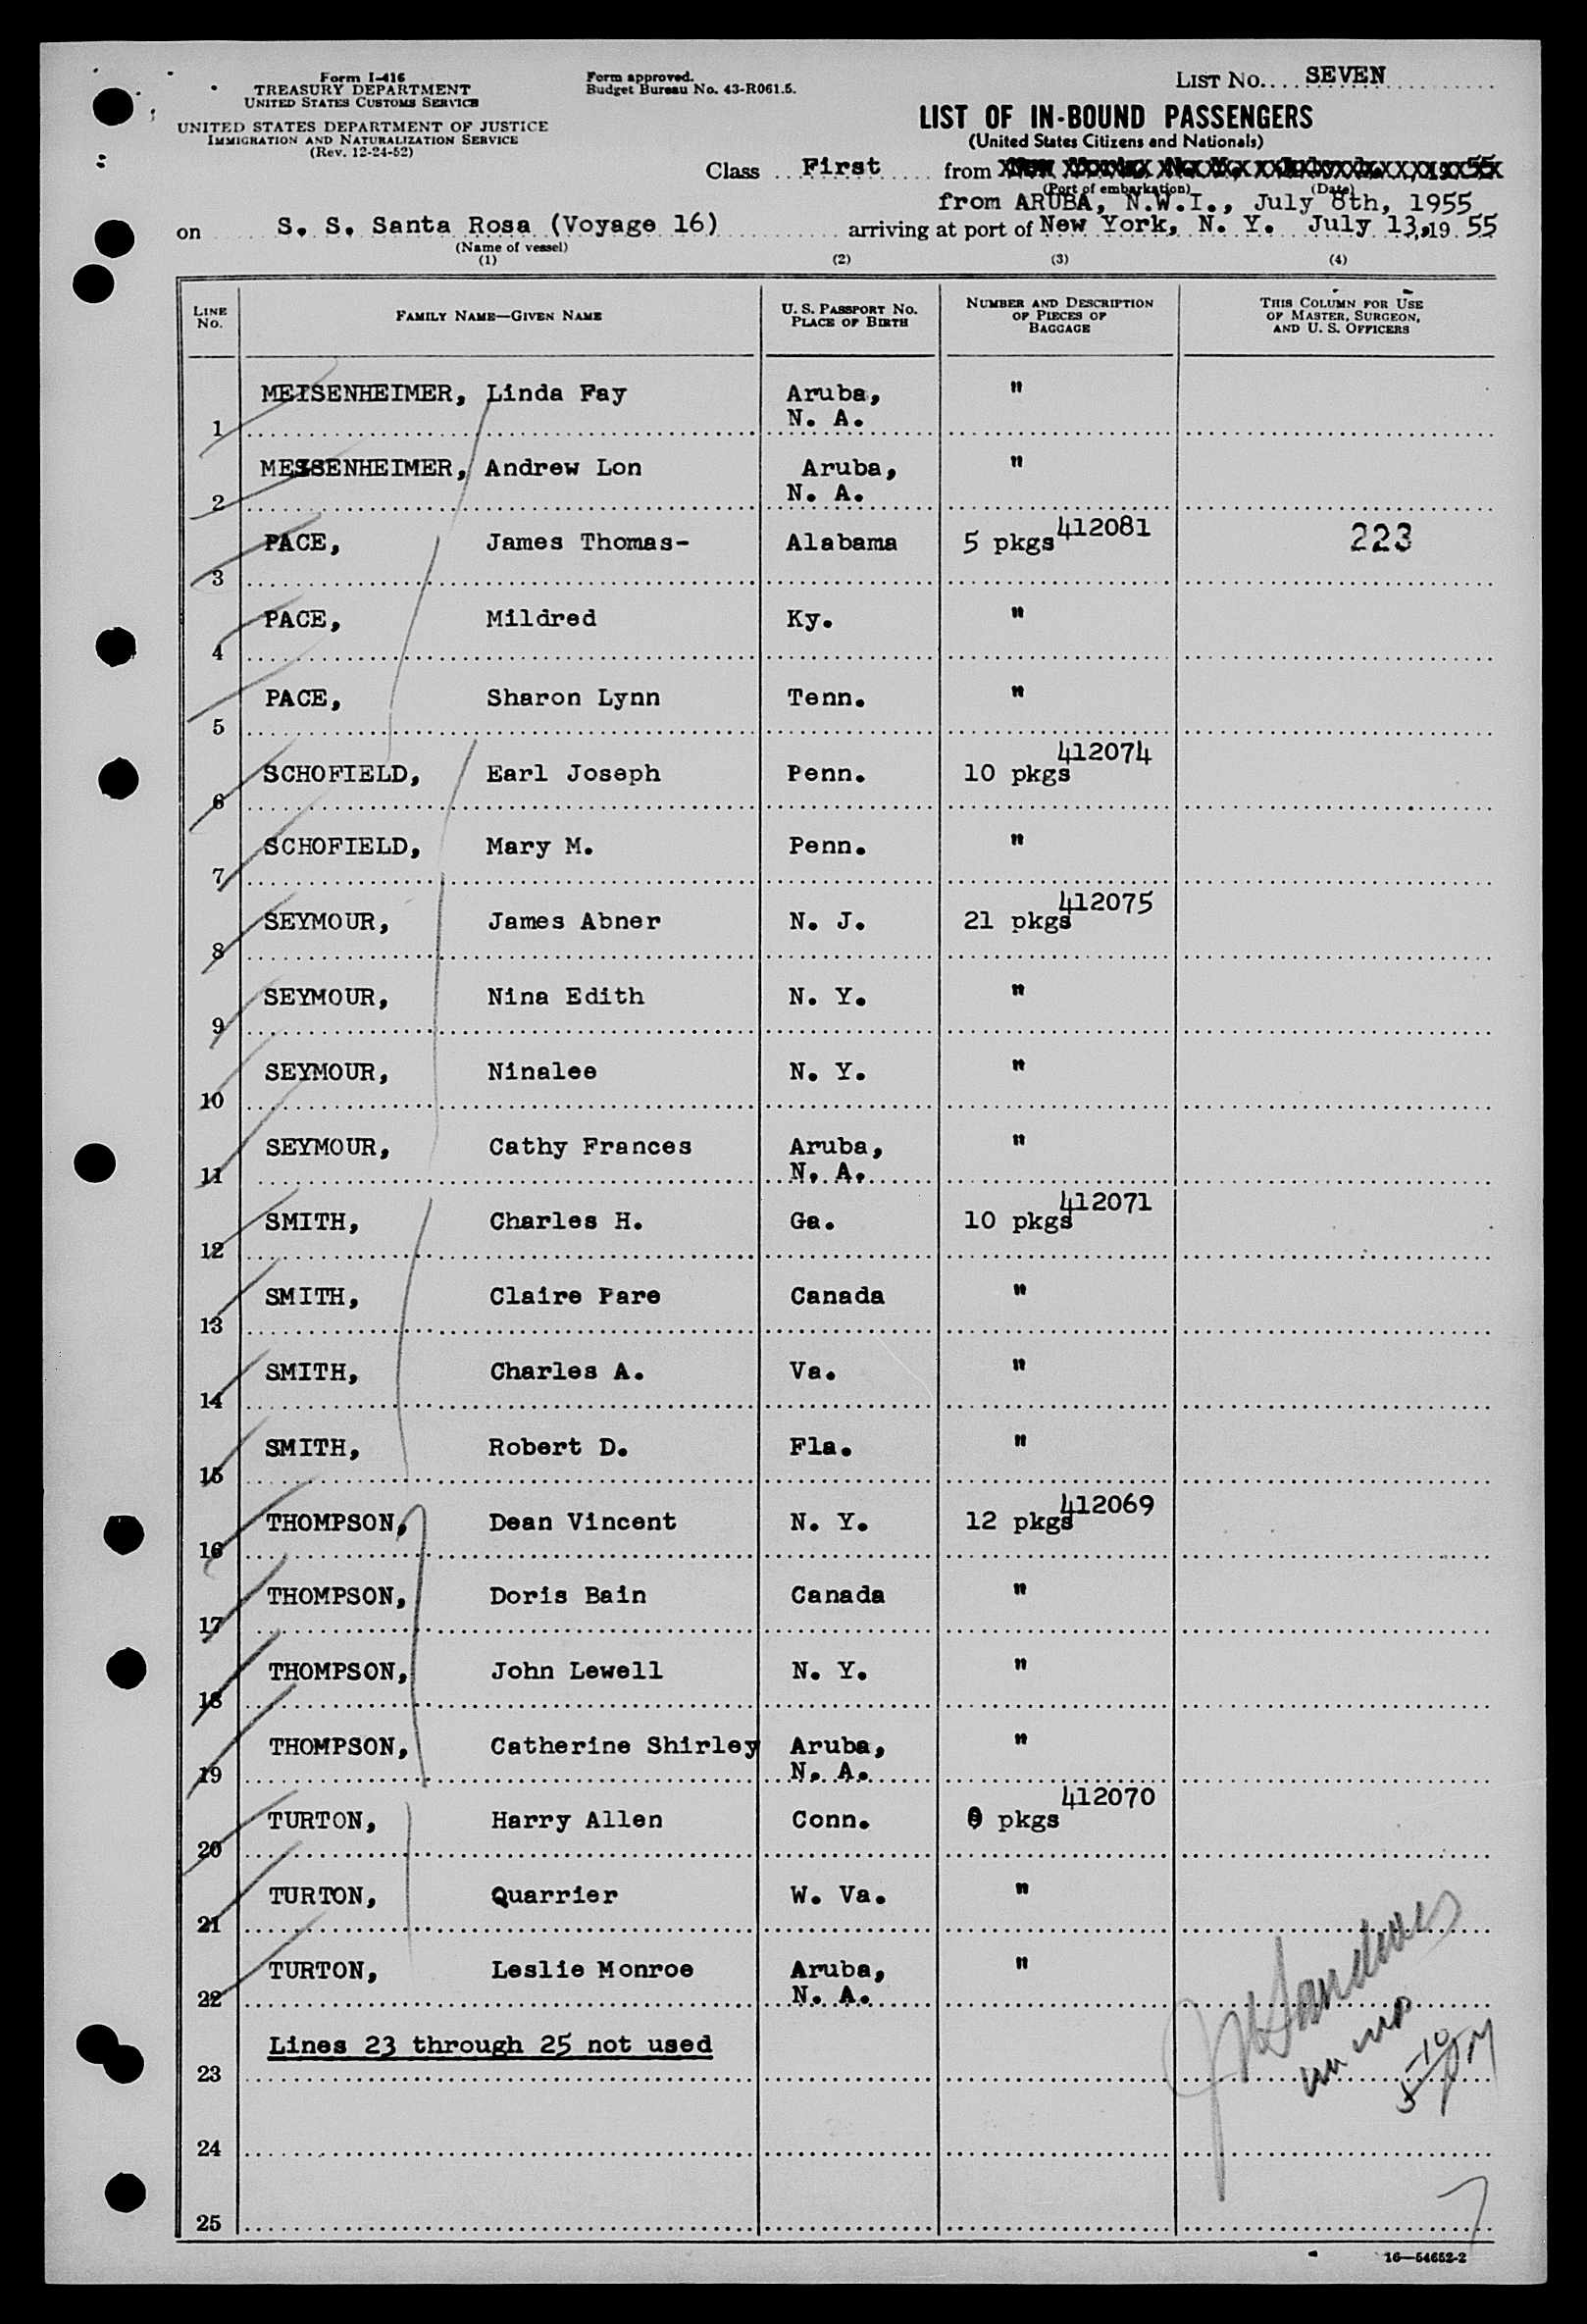 Form I-416
TREASURY DEPARTMENT
UNITED STATES CUSTOMS SERVICE
UNITED STATES DEPARTMENT OF JUSTICE
IMMIGRATION AND NATURALIZATION SERVICE
(Rev. 12-24-52)
Form approved.
Budget Bureau No. 43-R061.5.
LIST NO. SEVEN
LIST OF IN-BOUND PASSENGERS
(United States Citizens and Nationals)
Class First from
(Port of embarkation) (Date)
from ARUBA, N.W.I., July 8th, 1955
on S. S. Santa Rosa (Voyage 16) arriving at port of New York, N. Y. July 13, 1955
(Name of vessel)
(1) (2) (3) (4)
LINE NO. FAMILY NAME—GIVEN NAME U. S. PASSPORT NO. PLACE OF BIRTH NUMBER AND DESCRIPTION OF PIECES OF BAGGAGE THIS COLUMN FOR USE OF MASTER, SURGEON, AND U. S. OFFICERS
1 MEISENHEIMER, Linda Fay Aruba, N. A. "
2 MEISENHEIMER, Andrew Lon Aruba, N. A. "
3 PACE, James Thomas- Alabama 5 pkgs 412081 223
4 PACE, Mildred Ky. "
5 PACE, Sharon Lynn Tenn. "
6 SCHOFIELD, Earl Joseph Penn. 10 pkgs 412074
7 SCHOFIELD, Mary M. Penn. "
8 SEYMOUR, James Abner N. J. 21 pkgs 412075
9 SEYMOUR, Nina Edith N. Y. "
10 SEYMOUR, Ninalee N. Y. "
11 SEYMOUR, Cathy Frances Aruba, N. A. "
12 SMITH, Charles H. Ga. 10 pkgs 412071
13 SMITH, Claire Pare Canada "
14 SMITH, Charles A. Va. "
15 SMITH, Robert D. Fla. "
16 THOMPSON, Dean Vincent N. Y. 12 pkgs 412069
17 THOMPSON, Doris Bain Canada "
18 THOMPSON, John Lewell N. Y. "
19 THOMPSON, Catherine Shirley Aruba, N. A. "
20 TURTON, Harry Allen Conn. pkgs 412070
21 TURTON, Quarrier W. Va. "
22 TURTON, Leslie Monroe Aruba, N. A. "
23 Lines 23 through 25 not used
24
25
7
16—54652-2